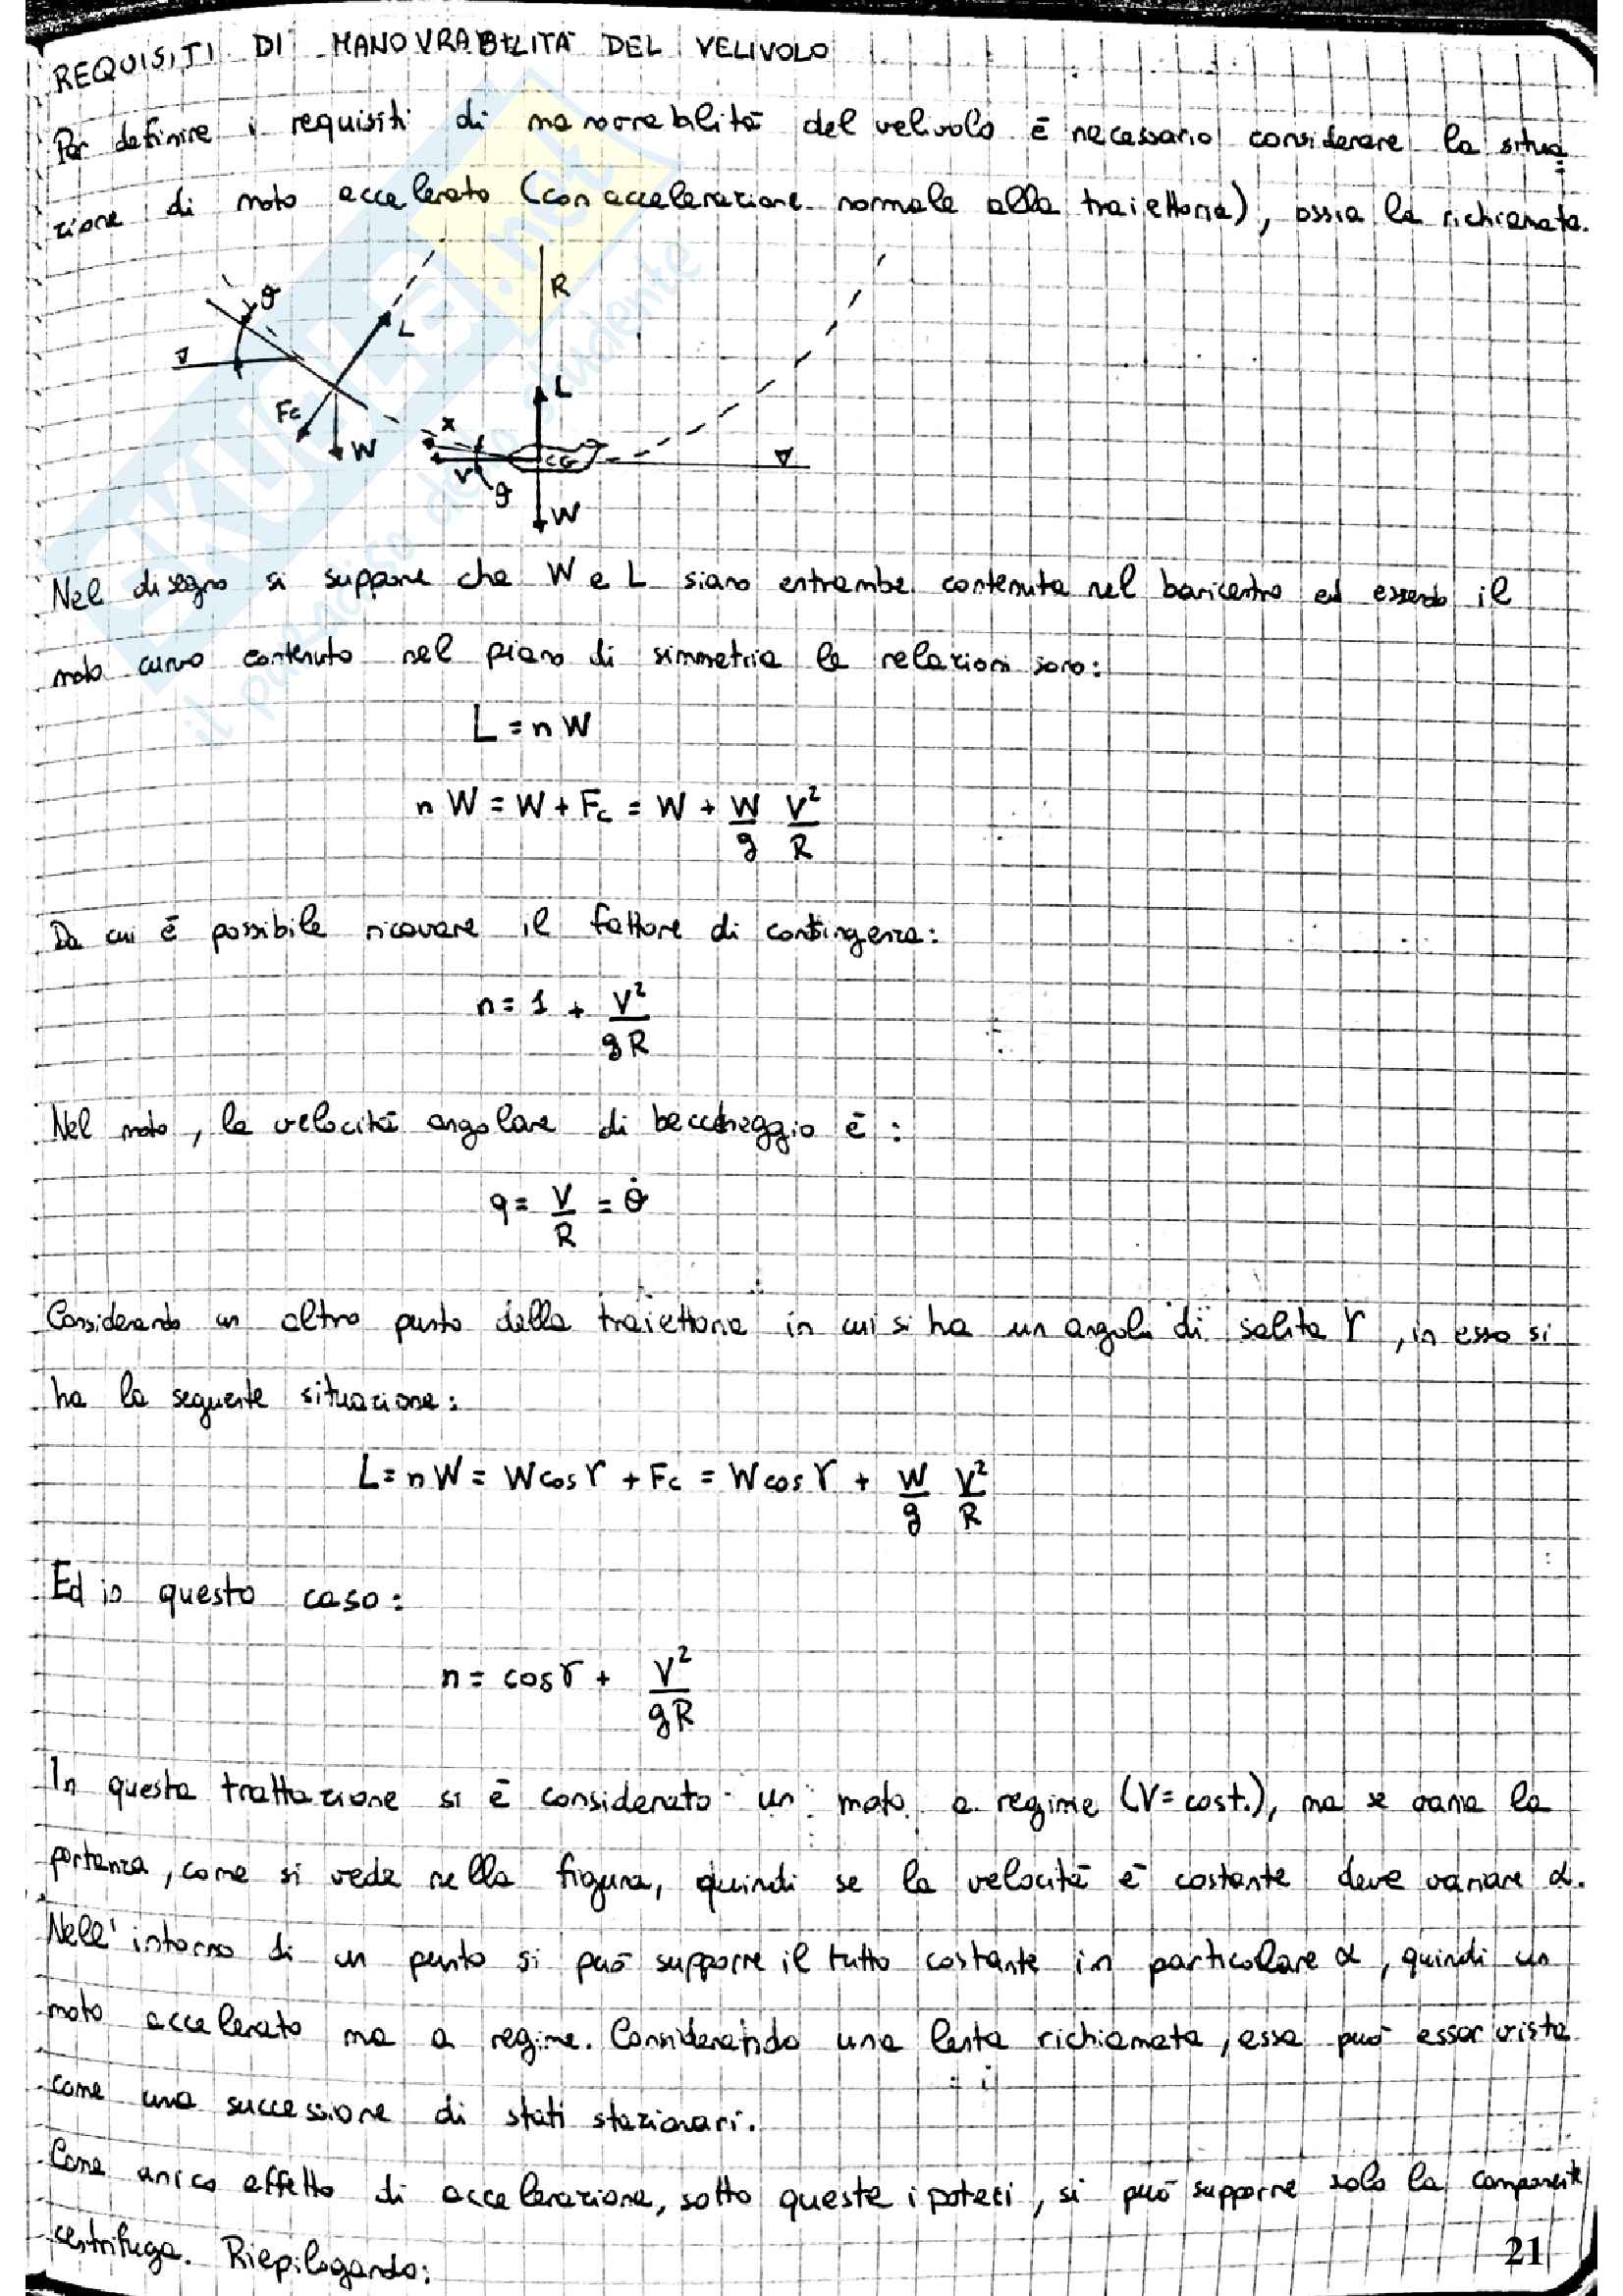 REQUISITI DI MANOVRABILITA' DEL VELIVOLO
Per definire i requisiti di manovrabilità del velivolo è necessario considerare la situa=
zione di moto accelerato (con accelerazione normale alla traiettoria), ossia la richiamata.
R
ϑ
L
L
Fc
W
x
CG
V
ϑ
W
Nel disegno si suppone che W e L siano entrambe contenute nel baricentro ed essendo il
moto curvo contenuto nel piano di simmetria le relazioni sono:
L = n W
n W = W + Fc = W + W/g V²/R
Da cui è possibile ricavare il fattore di contingenza:
n = 1 + V²/gR
Nel moto, la velocità angolare di beccheggio è:
q = V/R = ϑ̇
Considerando un altro punto della traiettoria in cui si ha un angolo di salita γ, in esso si
ha la seguente situazione:
L = n W = W cos γ + Fc = W cos γ + W/g V²/R
Ed in questo caso:
n = cos γ + V²/gR
In questa trattazione si è considerato un moto a regime (V = cost.), ma se varia la
portanza, come si vede nella figura, quindi se la velocità è costante deve variare α.
Nell'intorno di un punto si può supporre il tutto costante in particolare α, quindi un
moto accelerato ma a regime. Considerando una lenta richiamata, essa può esser vista
come una successione di stati stazionari.
Come unico effetto di accelerazione, sotto queste ipotesi, si può supporre solo la componente
centrifuga. Riepilogando:
21
SKUOLA.net
il paradiso dello studente